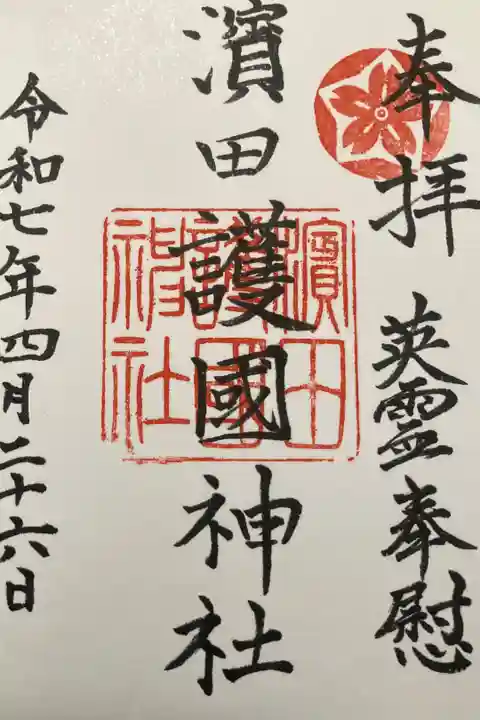 奉拝 英霊奉慰
濱田護國神社
濱田護國神社
令和七年四月二十六日